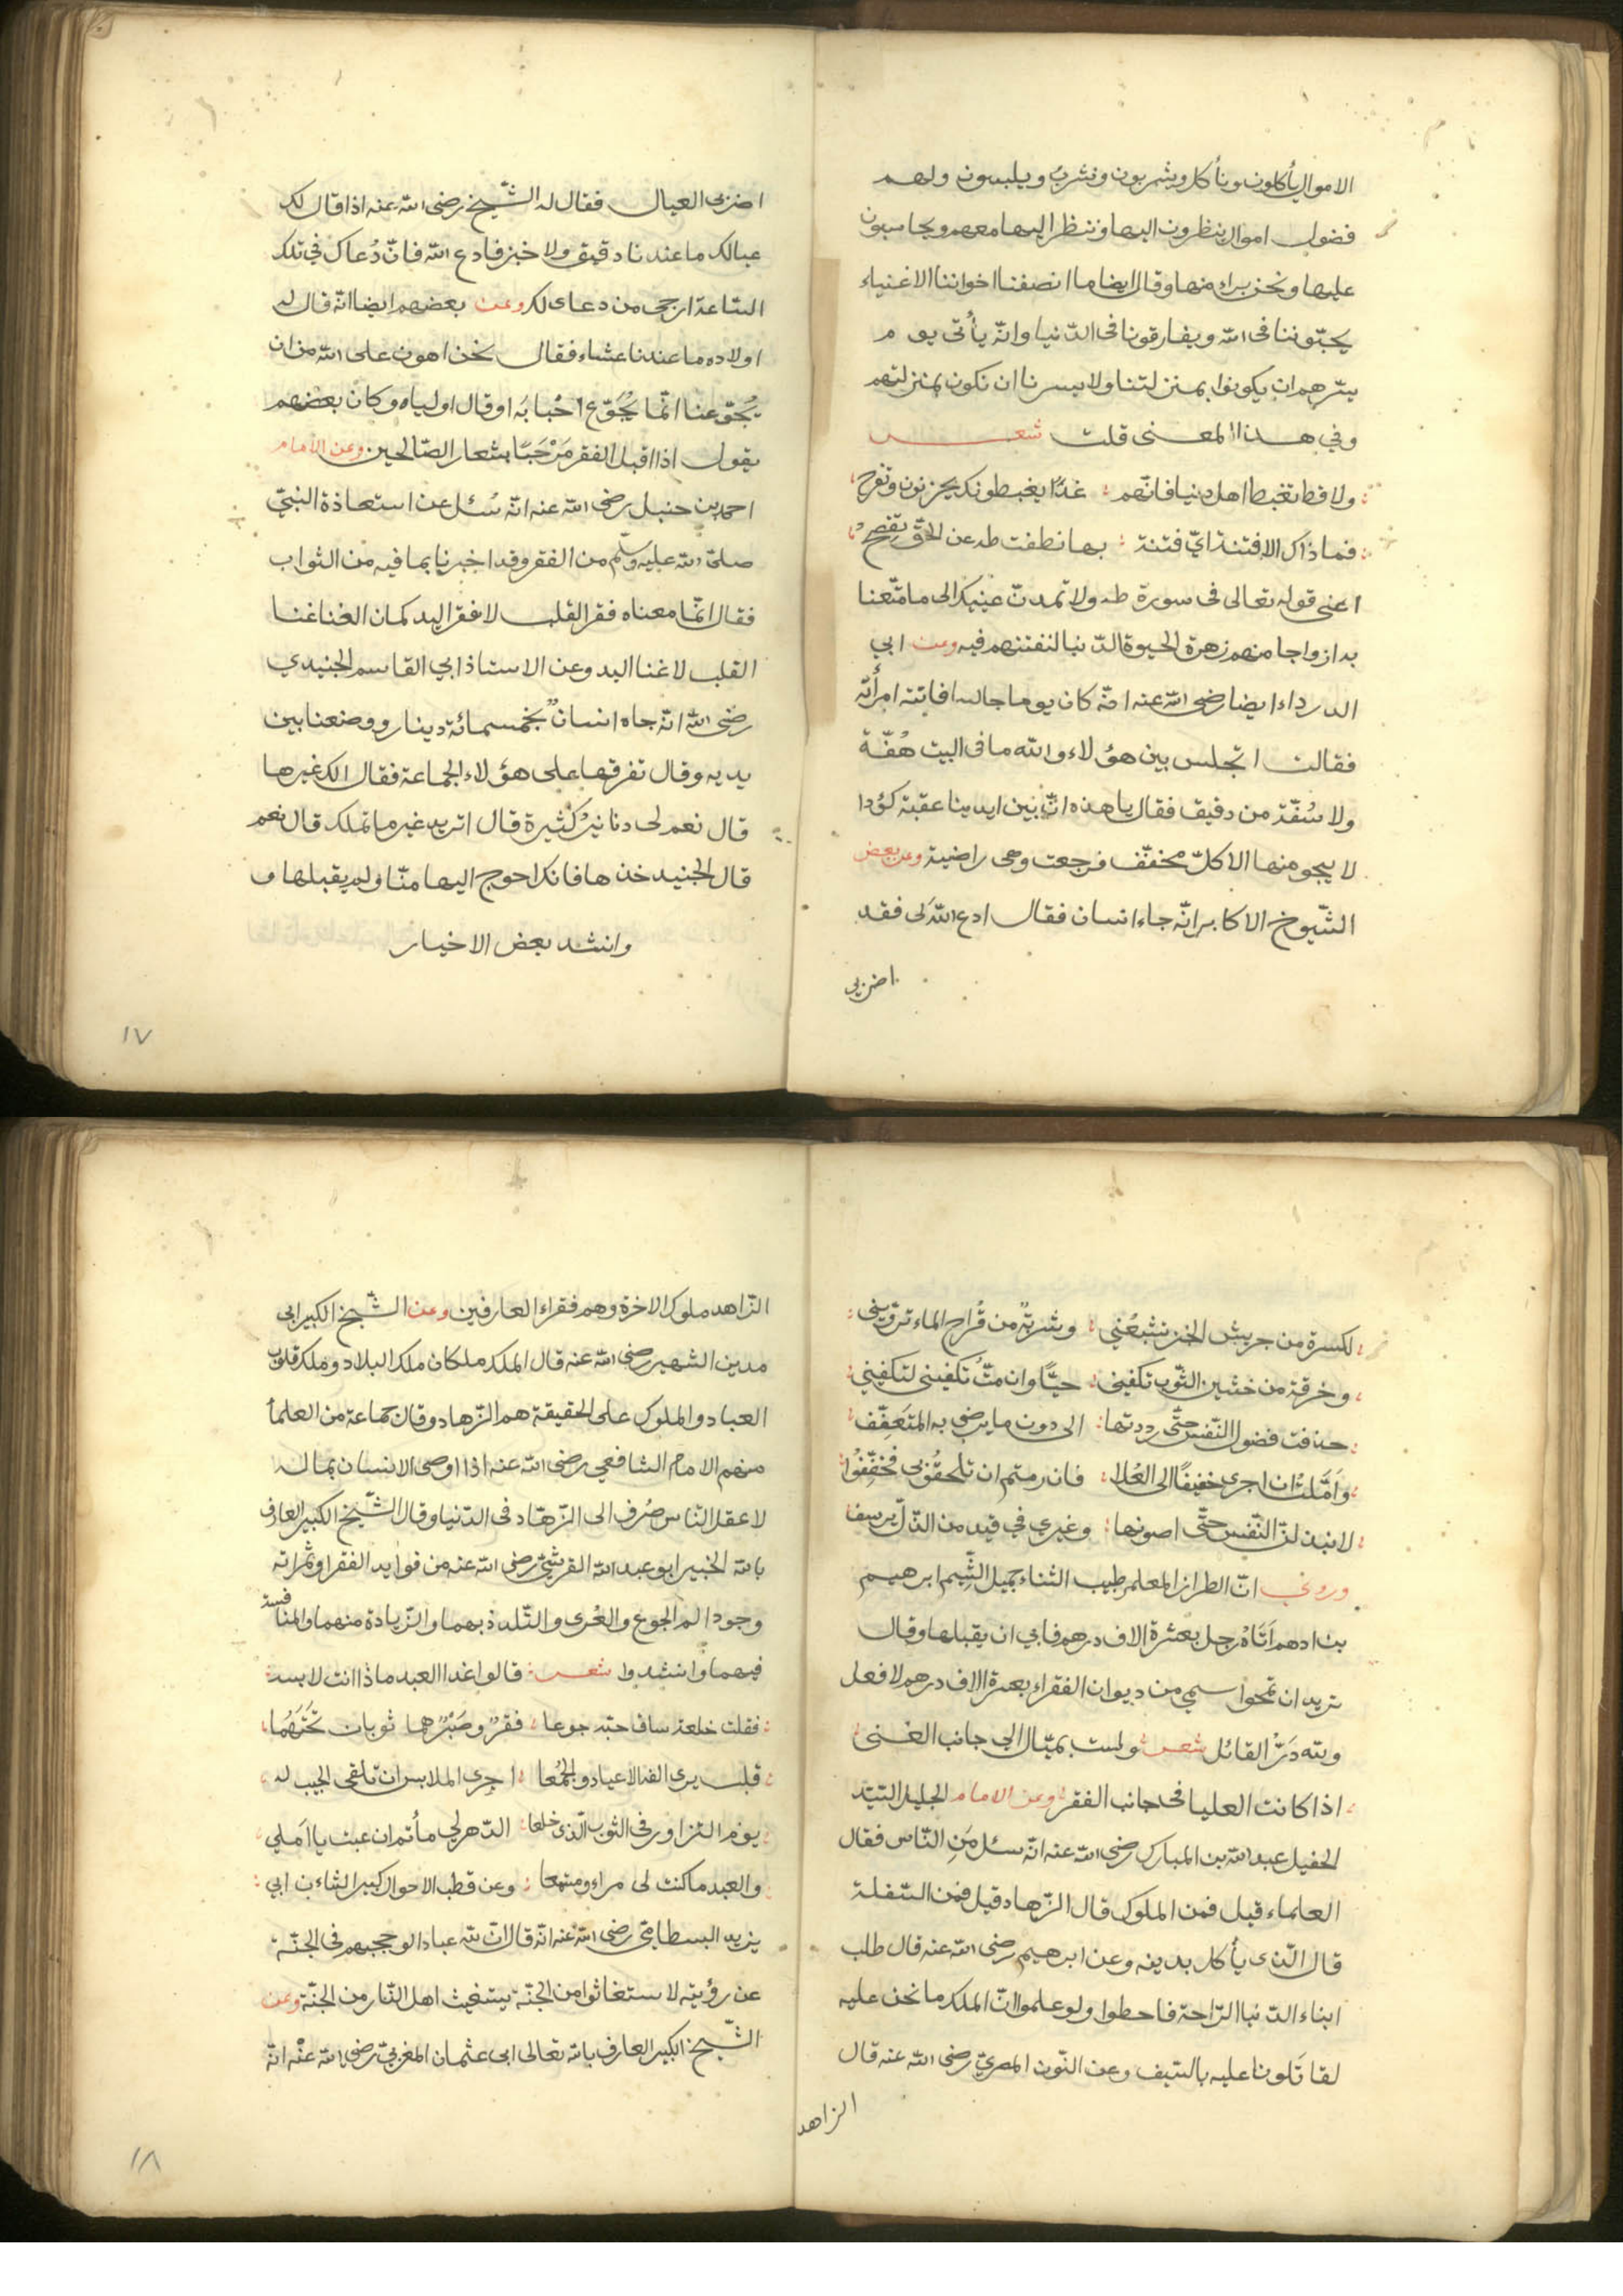 الاموال يأكلون ونأكل ويشربون ونشرب ويلبسون ولهم
فضول اموال ينظرون اليها وننظر اليها معهم ويحاسبون
عليها ونحن براء منها وقال ايضا ما انصفنا اخواننا الاغنياء
يحبّوننا فى الله ويفارقونا فى الدّنيا وانّه يأتى يوم
يسّرهم ان يكونوا بمنزلتنا ولا يسرنا ان نكون بمنزلتهم
وفي هذا المعنى قلت شعر
ولا قط تغبط اهل دنيا فانّهم غدًا يغبطونك يحزنون وتفرح
فما ذاك الا فتنة اىّ فتنة بها نطقت طه عن الحقّ تفصح
اعنى قوله تعالى فى سورة طه ولا تمدنّ عينيك الى ما متّعنا
به ازواجا منهم زهرة الحيوة الدّنيا لنفتنهم فيه وعن ابي
الدرداء ايضا رضى الله عنه انه كان يوما جالسا فاتته امرأته
فقالت اتجلس بين هؤلاء والله ما فى البيت هُفّة
ولا سُفّة من دقيق فقال يا هذه انّ بين ايدينا عقبة كؤدا
لا ينجو منها الا كلّ مخفّف فرجعت وهى راضية وعن بعض
الشّيوخ الاكابر انّه جاء انسان فقال ادع الله لى فقد
اضربى
اضربى العيال فقال له الشّيخ رضى الله عنه اذا قال لك
عيالك ما عندنا دقيق ولا خبز فادع الله فانّ دُعاك في تلك
السّاعة ارجى من دعاى لك وعن بعضهم ايضا انّه قال له
اولاده ما عندنا عشاء فقال نحن اهون على الله من ان
يُجوّعنا انّما يُجَوّع احْبابَه او قال اولياه وكان بعضهم
يقول اذا اقبل الفقر مَرْحَبًا بشعار الصّالحين وعن الامام
احمد بن حنبل رضى الله عنه انّه سُئل عن استعاذة النبىّ
صلىّ الله عليه وسلّم من الفقر وقد اخبرنا بما فيه من الثواب
فقال انّما معناه فقر القلب لا فقر اليد كما ان الغنا غنا
القلب لا غنا اليد وعن الاستاذ ابي القاسم الجنيدي
رضى الله انّه جاه انسان بخمسمائة دينار ووضعنا بين
يديه وقال تفرقها على هؤلاء الجماعة فقال الك غيرها
قال نعم لى دنانيرٌ كثيرة قال اتريد غير ما تملك قال نعم
قال الجنيد خذها فانك احوج اليها منّا ولم يقبلها و
وانشد بعض الاخيار
١٧
لكسرة من جريش الخبز تشبعُني وشربةٌ من قُراح الماء ترويني
وخرقة من خشين الثّوب تكفيني حيًّا وان متُّ تكفيني لتكفيني
حذفت فضول النّفس حتّى رددتها الى دون ما يرضى به المتعَفِّف
وَاَمَّلتُ ان اجرى خفيفًا الى العُلا فان رمتم ان تلحقُونى فخفِّفُوا
لابتذلنّ النّفس حتّى اصونها وغيري في قيد من الذّل يرسف
وروي انّ الطراز المعلم طيب الثناء جميل الشّيم ابرهيم
بن ادهم اَتَاهُ رجل بعشرة الاف درهم فابي ان يقبلها وقال
تريد ان تمحوا اسمي من ديوان الفقراء بعشرة الاف درهم لا فعل
ولله دَرّ القائل شعر ولست بميّال الى جانب الغنى
اذا كانت العليا فى جانب الفقر وعن الامام الجليل السّيّد
الحفيل عبد الله بن المبارك رضي الله عنه انّه سئل مَنِ النّاس فقال
العلماء قيل فمن الملوك قال الزّهاد قيل فمن السّفلة
قال الّذى يأكل بدينه وعن ابرهيم رضى الله عنه قال طلب
ابناء الدّنيا الرّاحة فاحطوا ولو علموا انّ الملك ما نحن عليه
لقاتَلونا عليه بالسّيف وعن النّون المصريّ رضى الله عنه قال
الزاهد
الزّاهد ملوك الاخرة وهم فقراء العارفين وعن الشّيخ الكبير ابى
مدين الشهير رضى الله عنه قال الملك ملكان ملك البلاد وملك قلوب
العباد والملوك على الحقيقة هم الزّهاد وقال جماعة من العلماء
منهم الامام الشافعي رضى الله عنه اذا اوصى الانسان بماله
لاعقل النّاس صُرف الى الزّهّاد فى الدّنيا وقال الشّيخ الكبير العارف
بالله الخبير ابو عبد الله القرشيّ رضى الله عنه من فوايد الفقر او ثمراته
وجود الم الجوع والعُرى والتّلذذ بهما والزّيادة منهما والمنافسة
فيهما وانشدوا شعر قالوا غدا العيد ماذا انت لابسه
فقلت خلعة ساق حبّه جوعا فقرٌ وصَبْرٌ هما ثوبان تحتَهُما
قلب يرى الفه الاعياد والجُمُعا احرى الملابس ان تلقى الحبيب له
يوم التزاور فى الثوب الّذى خلعا الدّهر لي مأتم ان غبت يا اَملي
والعيد ما كنت لى مراء ومستمعا وعن قطب الاحوال كبير الشاءن ابي
يزيد البسطامىّ رضى الله عنه انّه قال انّ لله عبادا لو حجبهم فى الجنّة
عن رؤيته لاستغاثوا من الجنّة يستغيث اهل النّار من الجنّة وعن
الشّيخ الكبير العارف بالله تعالى ابى عثمان المغربيّ رضى الله عنْه انّه
١٨